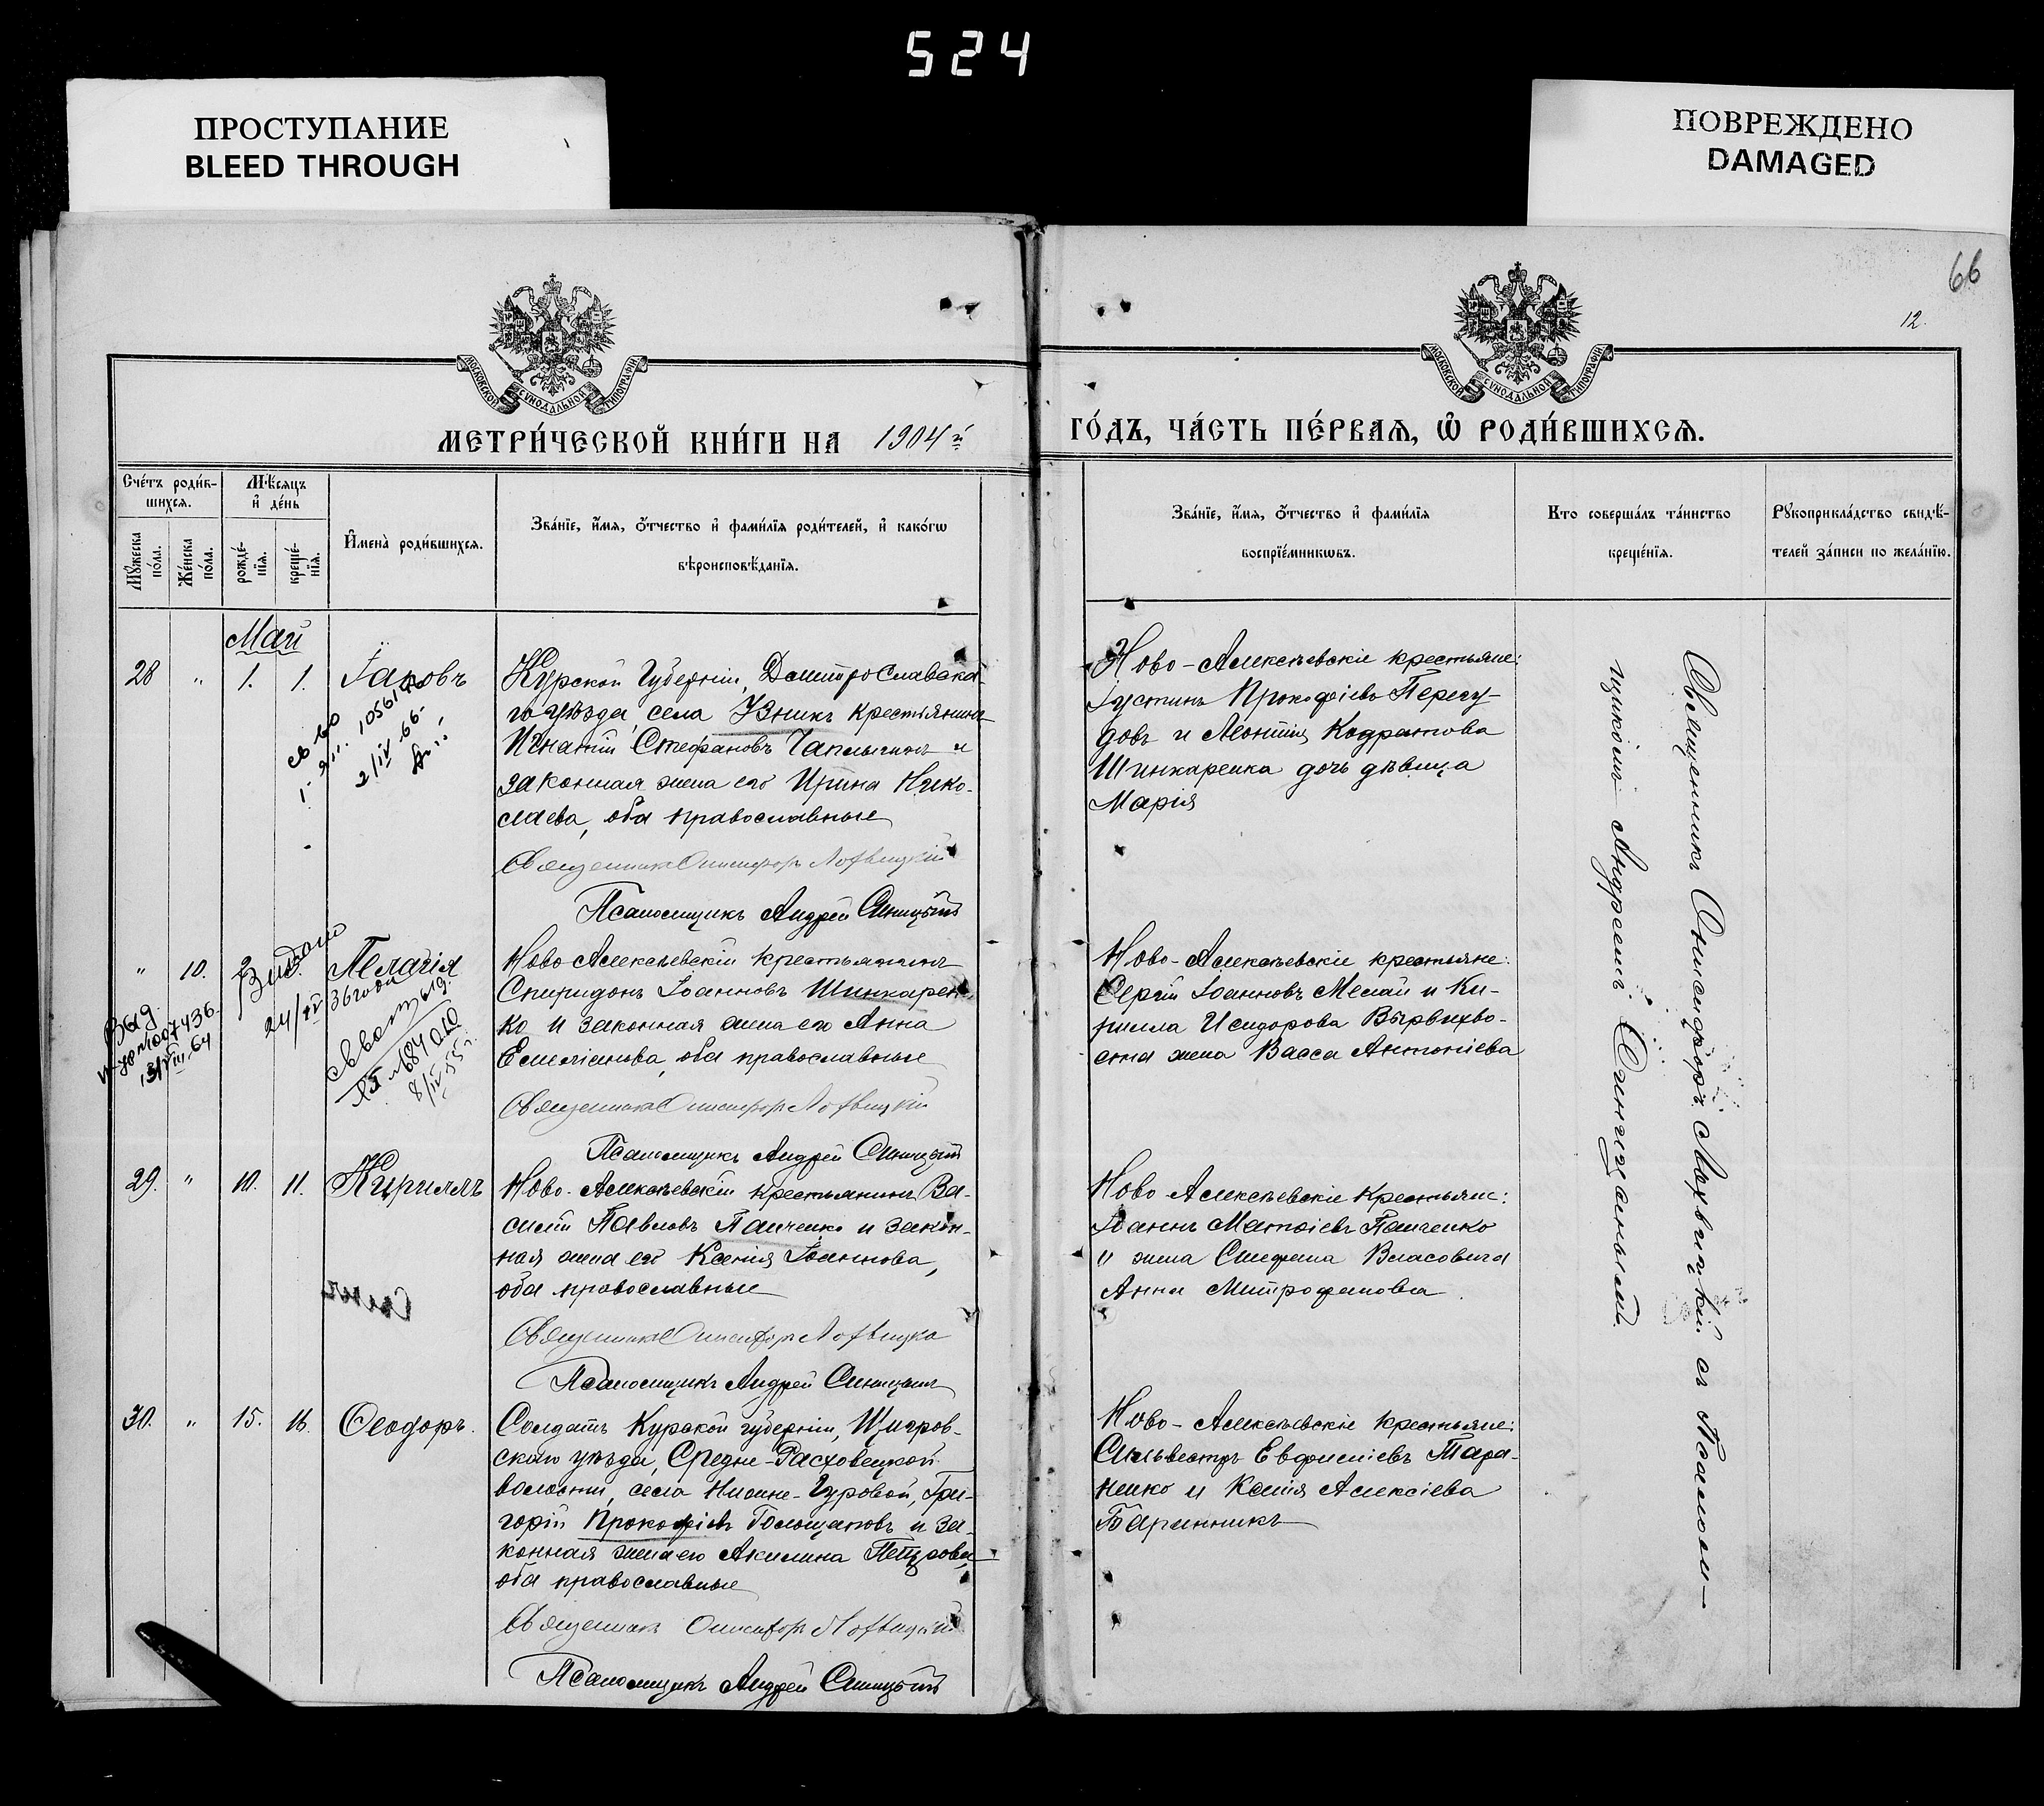 524
ПРОСТУПАНИЕ
BLEED THROUGH
ПОВРЕЖДЕНО
DAMAGED
66
12.
МОСКОВСКОЙ СѴНОДАЛЬНОЙ ТИПОГРАФІИ
МОСКОВСКОЙ СѴНОДАЛЬНОЙ ТИПОГРАФІИ
МЕТРИ́ЧЕСКОЙ КНИ́ГИ НА 1904 й
ГО́ДЪ, ЧА́СТЬ ПЕ́РВАѦ, Ѽ РОДИ́ВШИХСѦ.
Сче́тъ роди́в-
шихсѧ.
Мꙋ́жеска по́ла.
Же́нска по́ла.
Мѣ́сѧцъ и҆ де́нь
рожде́-
нїѧ.
креще́-
нїѧ.
И҆мена̀ роди́вшихсѧ.
Зва́нїе, и҆́мѧ, ѻ҆́тчество и҆ фами́лїѧ роди́телей, и҆ како́гѡ
вѣроисповѣ́данїѧ.
Зва́нїе, и҆́мѧ, ѻ҆́тчество и҆ фами́лїѧ
воспрїе́мникѡвъ.
Кто соверша́лъ та́инство
креще́нїѧ.
Рꙋкоприкла́дство свидѣ́-
телей за́писи по жела́нїю.
Май
28 " 1. 1. Іаковъ
2/IV 66-
Курской Губерніи, Дмитрославска-
го уѣзда, села Узникъ крестьянинъ
Игнатій Стефановъ Чаплыгинъ и
законная жена его Ирина Нико-
лаева, оба православные
Священникъ Онисифоръ Лохвицкій
Псаломщикъ Андрей Синицынъ
Ново-Алексѣевскіе крестьяне:
Іустинъ Прокофіевъ Пересу-
довъ и Леонтія Кодратова
Шинкаренка дочь дѣвица
Марія
" 10. Пелагія
24/IV 36 года
Выд.
13/VIII-64
8/IV 55 г.
Ново-Алексѣевскій крестьянинъ
Спиридонъ Іоанновъ Шинкарен-
ко и законная жена его Анна
Емеліанова, оба православные
Священникъ Онисифоръ Лохвицкій
Псаломщикъ Андрей Синицынъ
Ново-Алексѣевскіе крестьяне:
Сергій Іоанновъ Мелай и Ки-
рилла Исидорова Вырвихво-
ста жена Васса Антоніева
29. " 10. 11. Кириллъ
Ново-Алексѣевскій крестьянинъ Ва-
силій Павловъ Панченко и закон-
ная жена его Ксенія Іоаннова,
оба православные
Священникъ Онисифоръ Лохвицкій
Псаломщикъ Андрей Синицынъ
Ново-Алексѣевскіе крестьяне:
Іоаннъ Матѳіевъ Панченко
и жена Власовича
Анна Митрофанова
30. " 15. 16. Ѳеодоръ.
Солдатъ Курской губерніи, Щигров-
скаго уѣзда, Средне-Расховецкой
волости, села Нижне-Гуровой, Гри-
горій Прокофіевъ Голощаповъ и за-
конная жена его Акилина Петрова,
оба православные
Священникъ Онисифоръ Лохвицкій
Псаломщикъ Андрей Синицынъ
Ново-Алексѣевскіе крестьяне:
Сильвестръ Евфиміевъ Тара-
ненко и Ксенія Алексіева
Баранникъ
Священникъ Онисифоръ Лохвицкій съ Псаломщ-
щикомъ Андреемъ Синицынымъ.